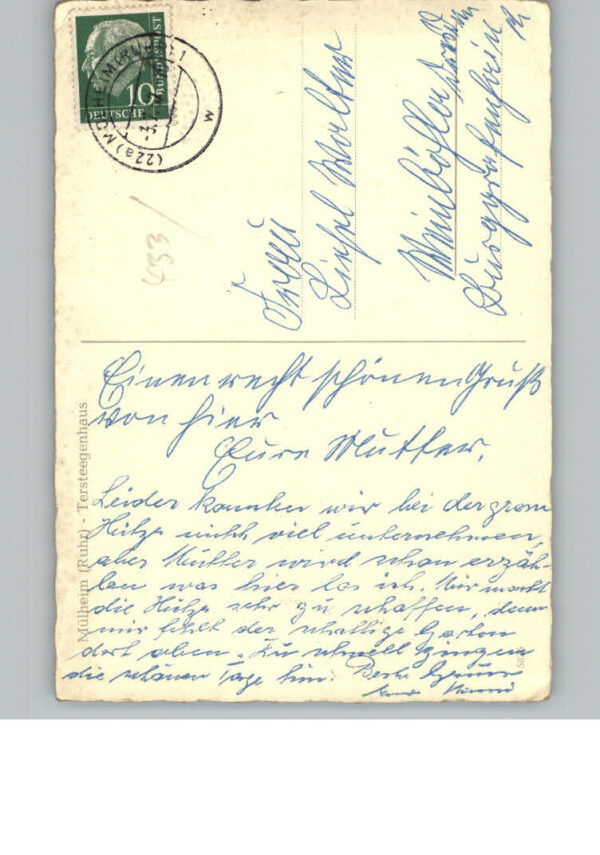 10
DEUTSCHE
BUNDESPOST
(22a) MÜLHEIM (RUHR) 1
w
453
Frau
Liesel Walter
Burggrafenhein
Einen recht schönen Gruß
von hier
Eure Mutter.
Leider konnten wir bei der gran
Hitze nicht viel unternehmen,
aber Mutter wird schon erzäh-
len was hier los ist. Mir macht
die Hitze sehr zu schaffen, denn
mir fehlt der schattige Garten
dort oben. Zu schnell gingen
die schönen Tage hin. Beste Grüsse
Mülheim (Ruhr) - Tersteegenhaus
58